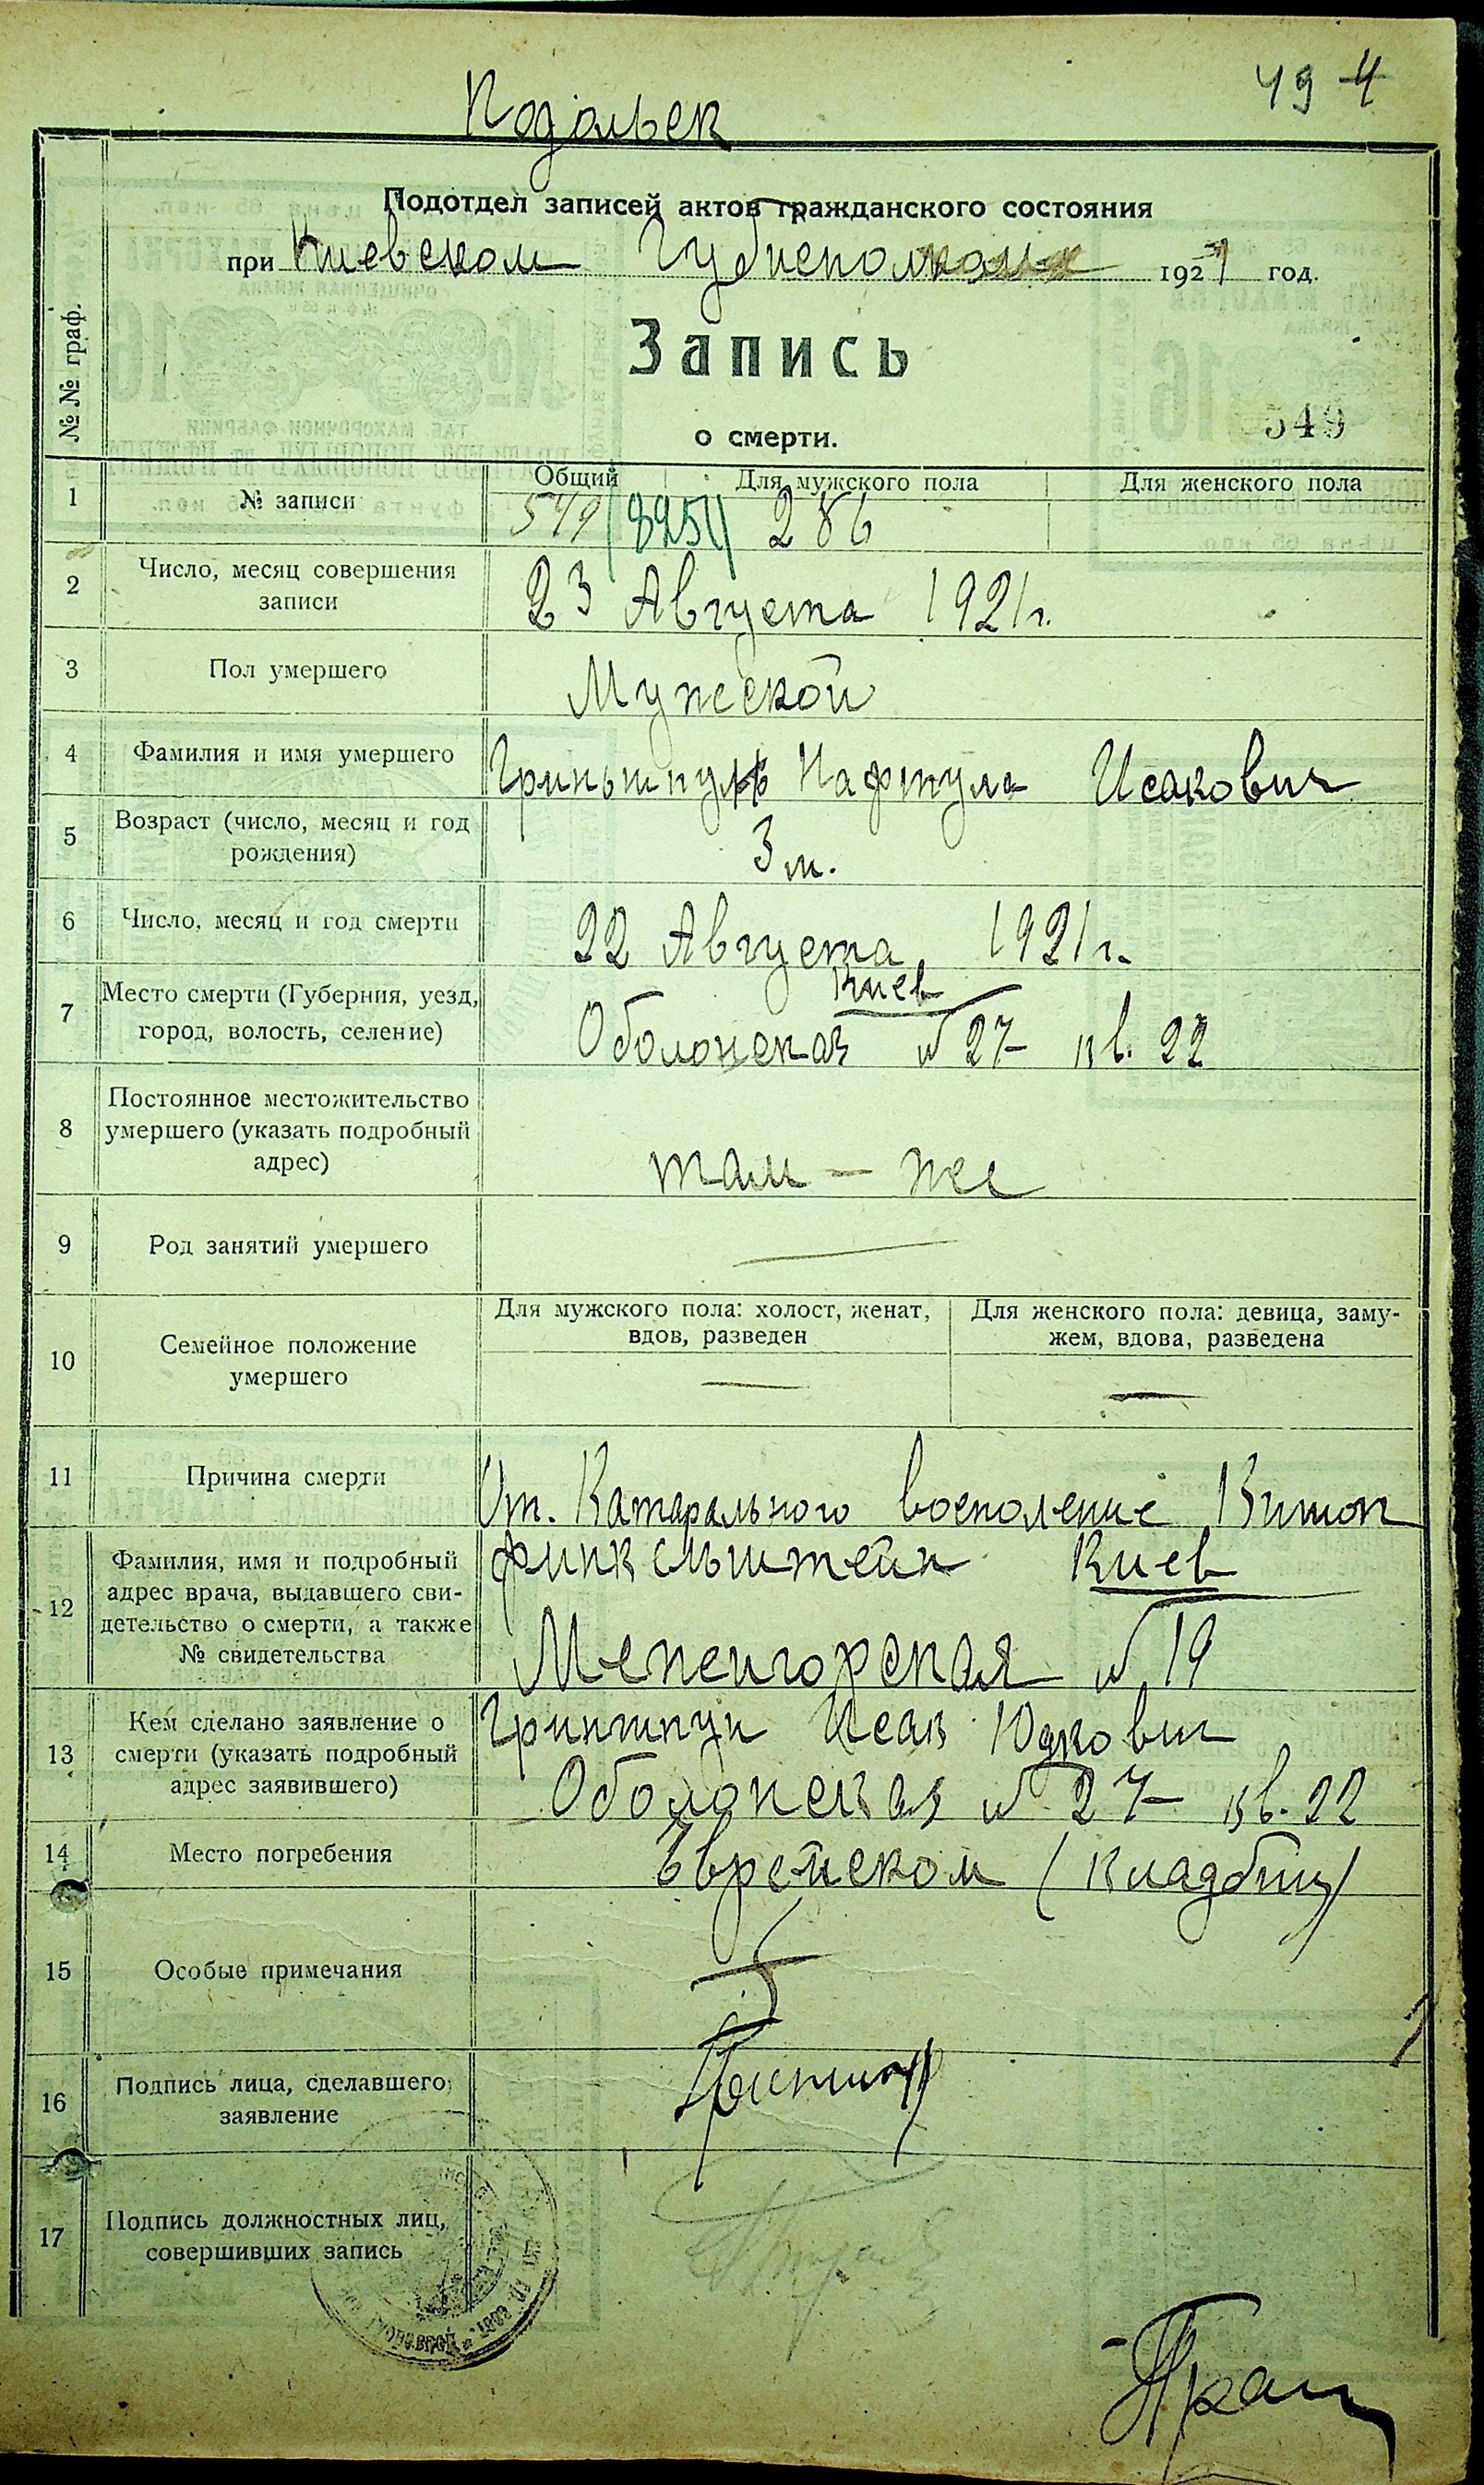 49 4
Подольск
Подотдел записей актов гражданского состояния
при Киевском Губисполкоме 1921 год.
Запись
о смерти.
549
№№ граф.
1 № записи Общий Для мужского пола Для женского пола
549 (8251) 286
2 Число, месяц совершения
записи
23 Августа 1921 г.
3 Пол умершего Мужской
4 Фамилия и имя умершего Гриньшпун Нафтула Исакович
5 Возраст (число, месяц и год
рождения)
3 м.
6 Число, месяц и год смерти 22 Августа 1921 г.
7 Место смерти (Губерния, уезд,
город, волость, селение)
Киев
Оболонская № 27 кв. 22
8 Постоянное местожительство
умершего (указать подробный
адрес)
там – же
9 Род занятий умершего
10 Семейное положение
умершего
Для мужского пола: холост, женат,
вдов, разведен
Для женского пола: девица, заму-
жем, вдова, разведена
11 Причина смерти От. Катарального восполение Кишок
12 Фамилия, имя и подробный
адрес врача, выдавшего сви-
детельство о смерти, а также
№ свидетельства
Финкельштейн Киев
№ 19
13 Кем сделано заявление о
смерти (указать подробный
адрес заявившего)
Гриншпун Исак Юдкович
Оболонская № 27 кв. 22
14 Место погребения Еврейском (Кладбищ)
15 Особые примечания
16 Подпись лица, сделавшего
заявление
17 Подпись должностных лиц,
совершивших запись